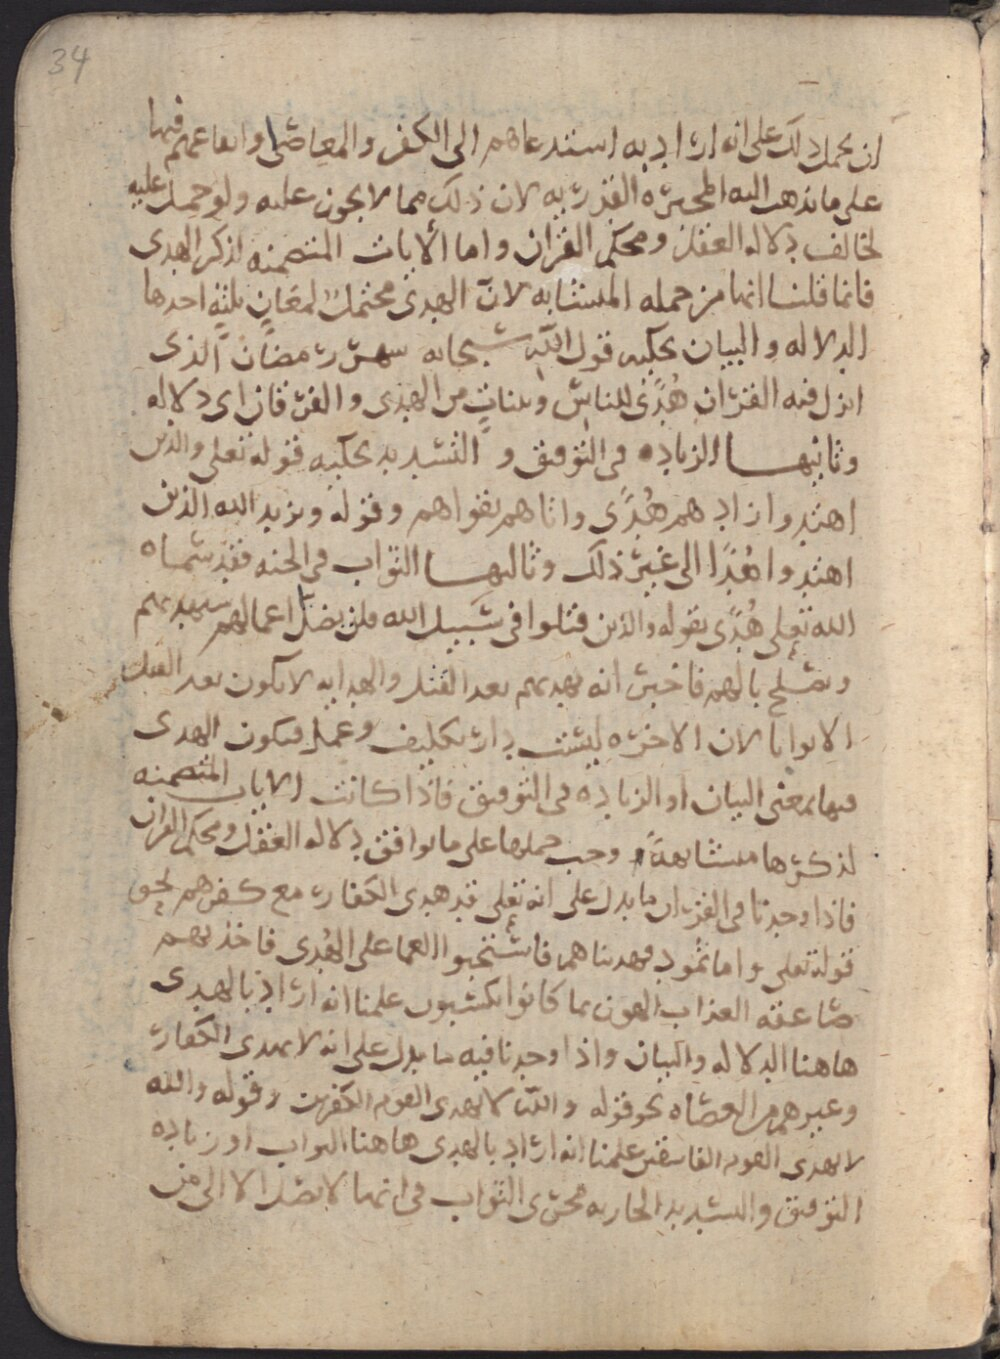 34
ان يحمل ذلك على انه اراد به استدعاهم الى الكفر والمعاصى وايقاعهم فيها
على ما يذهب اليه المجبره القدريه لان ذلك مما لا يجوز عليه ولو حمل عليه
لخالف دلاله العقل ومحكم القران واما الايات المتضمنه لذكر الهدى
فانما قلنا انها من جمله المتشابه لانّ الهدى محتملٌ لمعانٍ ثلثهٍ احدها
الدلاله والبيان يحكيه قول الله سبحانه شهر رمضان الذى
انزل فيه القران هُدًى للناس وبيناتٍ من الهدى والفرقان اى دلاله
وثانيها الزياده فى التوفيق والتسديد يحكيه قوله تعلى والذين
اهتدوا زادهم هُدًى واتاهم تقواهم وقوله ويزيد الله الذين
اهتدوا هُدًا الى غير ذلك وثالثها الثواب فى الجنه فقد سماه
الله تعلى هُدًى بقوله والذين قتلوا فى سبيل الله فلن يضل اعمالهم سيهديهم
ويصلح بالهم فاخبر انه يهديهم بعد القتل والهدايه لا يكون بعد القتل
الا ثوابا لان الاخره ليست بدار تكليف وعمل فيكون الهدى
فيها بمعنى البيان او الزياده فى التوفيق فاذا كانت الايات المتضمنه
لذكرها متشابهةً وجب حملها على ما يوافق دلاله العقل ومحكم القران
فاذا وجدنا فى القران ما يدل على انه تعلى قد هدى الكفار مع كفرهم نحو
قوله تعلى واما ثمود فهديناهم فاستحبوا العما على الهُدى فاخذتهم
صاعقه العذاب الهون بما كانوا يكسبون علمنا انه اراد بالهدى
هاهنا الدلاله والبيان واذا وجدنا فيه ما يدل على انه لا يهدى الكفار
وغيرهم من العصاه نحو قوله والله لا يهدى القوم الكفرين وقوله والله
لا يهدى القوم الفاسقين علمنا انه اراد بالهدى هاهنا الثواب او زياده
التوفيق والتسديد الجاريه مجرى الثواب فى انها لا يصل الا الى من